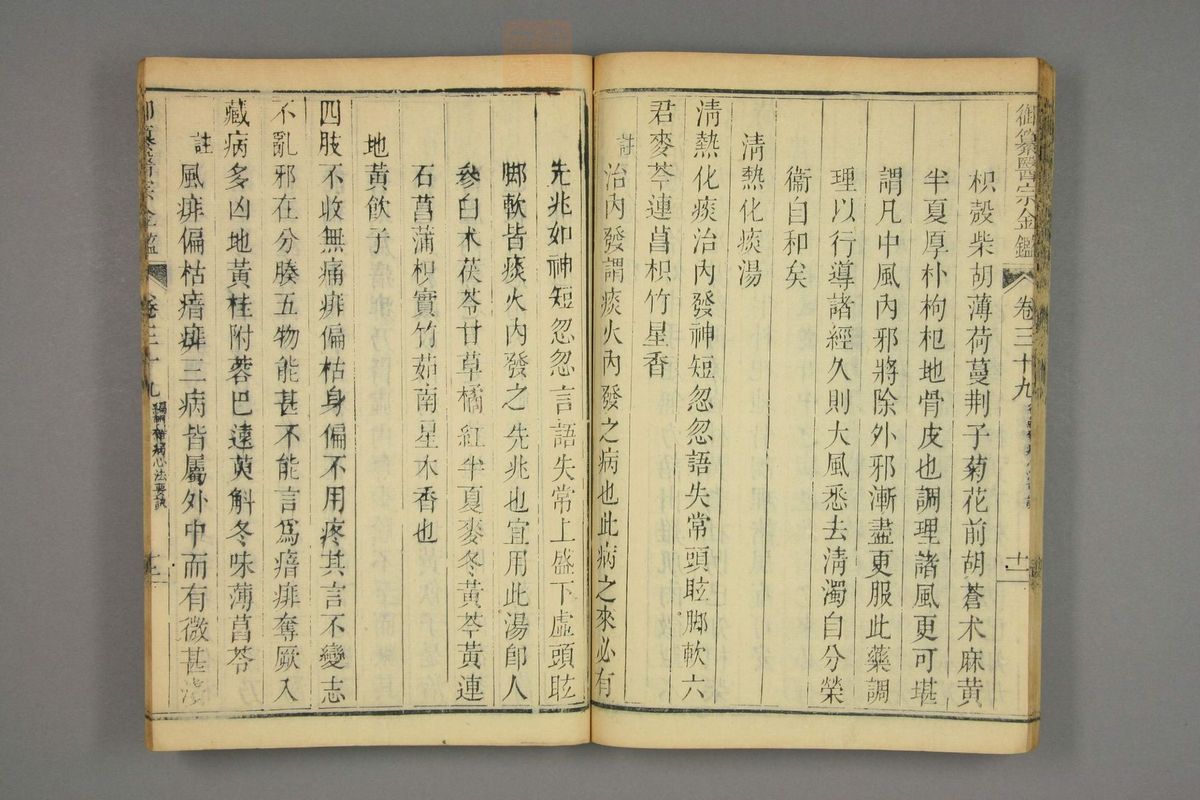 御纂醫宗金鑑 卷三十九
枳殼柴胡薄荷蔓荆子菊花前胡蒼术麻黄
半夏厚朴枸杞地骨皮也調理諸風更可堪
謂凡中風內邪將除外邪漸盡更服此藥調
理以行導諸經久則大風悉去淸濁自分榮
衞自和矣
淸熱化痰湯
淸熱化痰治內發神短忽忽語失常頭眩脚軟六
君麥芩連菖枳竹星香
註 治內發謂痰火內發之病也此病之來必有
先兆如神短忽忽言語失常上盛下虛頭眩
脚軟皆痰火內發之先兆也宜用此湯卽人
參白术茯苓甘草橘紅半夏麥冬黄芩黄連
石菖蒲枳實竹茹南星木香也
地黄飲子
四肢不收無痛痱偏枯身偏不用疼其言不變志
不亂邪在分腠五物能甚不能言爲瘖痱奪厥入
藏病多凶地黄桂附蓉巴遠萸斛冬味薄菖苓
註 風痱偏枯瘖痱三病皆屬外中而有微甚淺
御纂醫宗金鑑 卷三十九 編輯雜病心法要訣